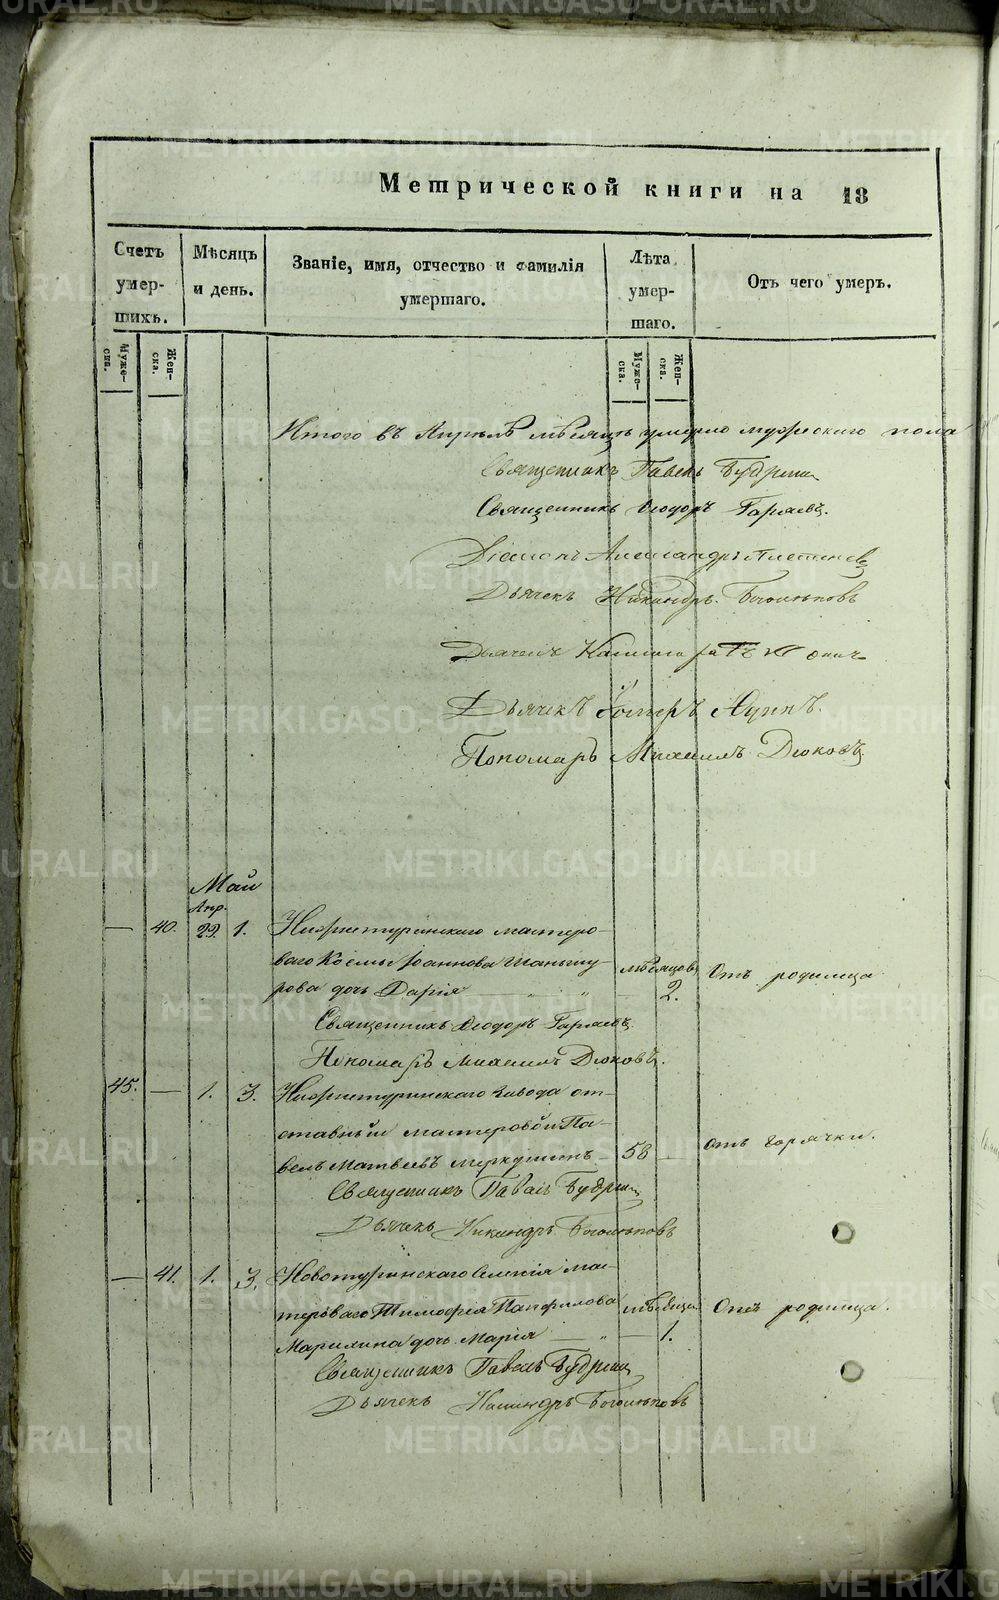 Метрической книги на 18
Счетъ умер-шихъ.
Мѣсяцъ и день.
Званіе, имя, отчество и фамилія умершаго.
Лѣта умер-шаго.
Отъ чего умеръ.
Муже-ска.
Жен-ска.
Муже-ска.
Жен-ска.
Итого въ Апрѣлѣ мѣсяцѣ умерло мужескаго пола
Священникъ Павелъ Будрин
Священникъ Ѳеодоръ Гаряевъ.
Діаконъ Александръ Плетенев
Дьячекъ Никандръ Боголѣповъ
Дьячекъ
Дьячекъ Яцинъ.
Пономарь Михаилъ Дюковъ
Май
Апр.
— 40. 29. 1. Нижнетуринскаго мастеро-
ваго Космы Іоаннова Шаньгу- мѣсяцов Отъ родимца
рова дочь Дарія — „ — „ — 2.
Священникъ Ѳеодоръ Гаряевъ
Пономарь Михаилъ Дюковъ.
45. — 1. 3. Нижнетуринскаго завода от-
ставный мастеровой Па-
велъ Матвеевъ Меркушинъ 58 — отъ горячки.
Священникъ Павелъ Будрин
Дьячекъ Никандръ Боголѣповъ
— 41. 1. 3. Новотуринскаго селенія мас-
тероваго Тимофея Панфилова мѣсяца Отъ родимца.
дочь Марія — „ — 1.
Священникъ Павелъ Будрин
Дьячекъ Никандръ Боголѣповъ
METRIKI.GASO-URAL.RU